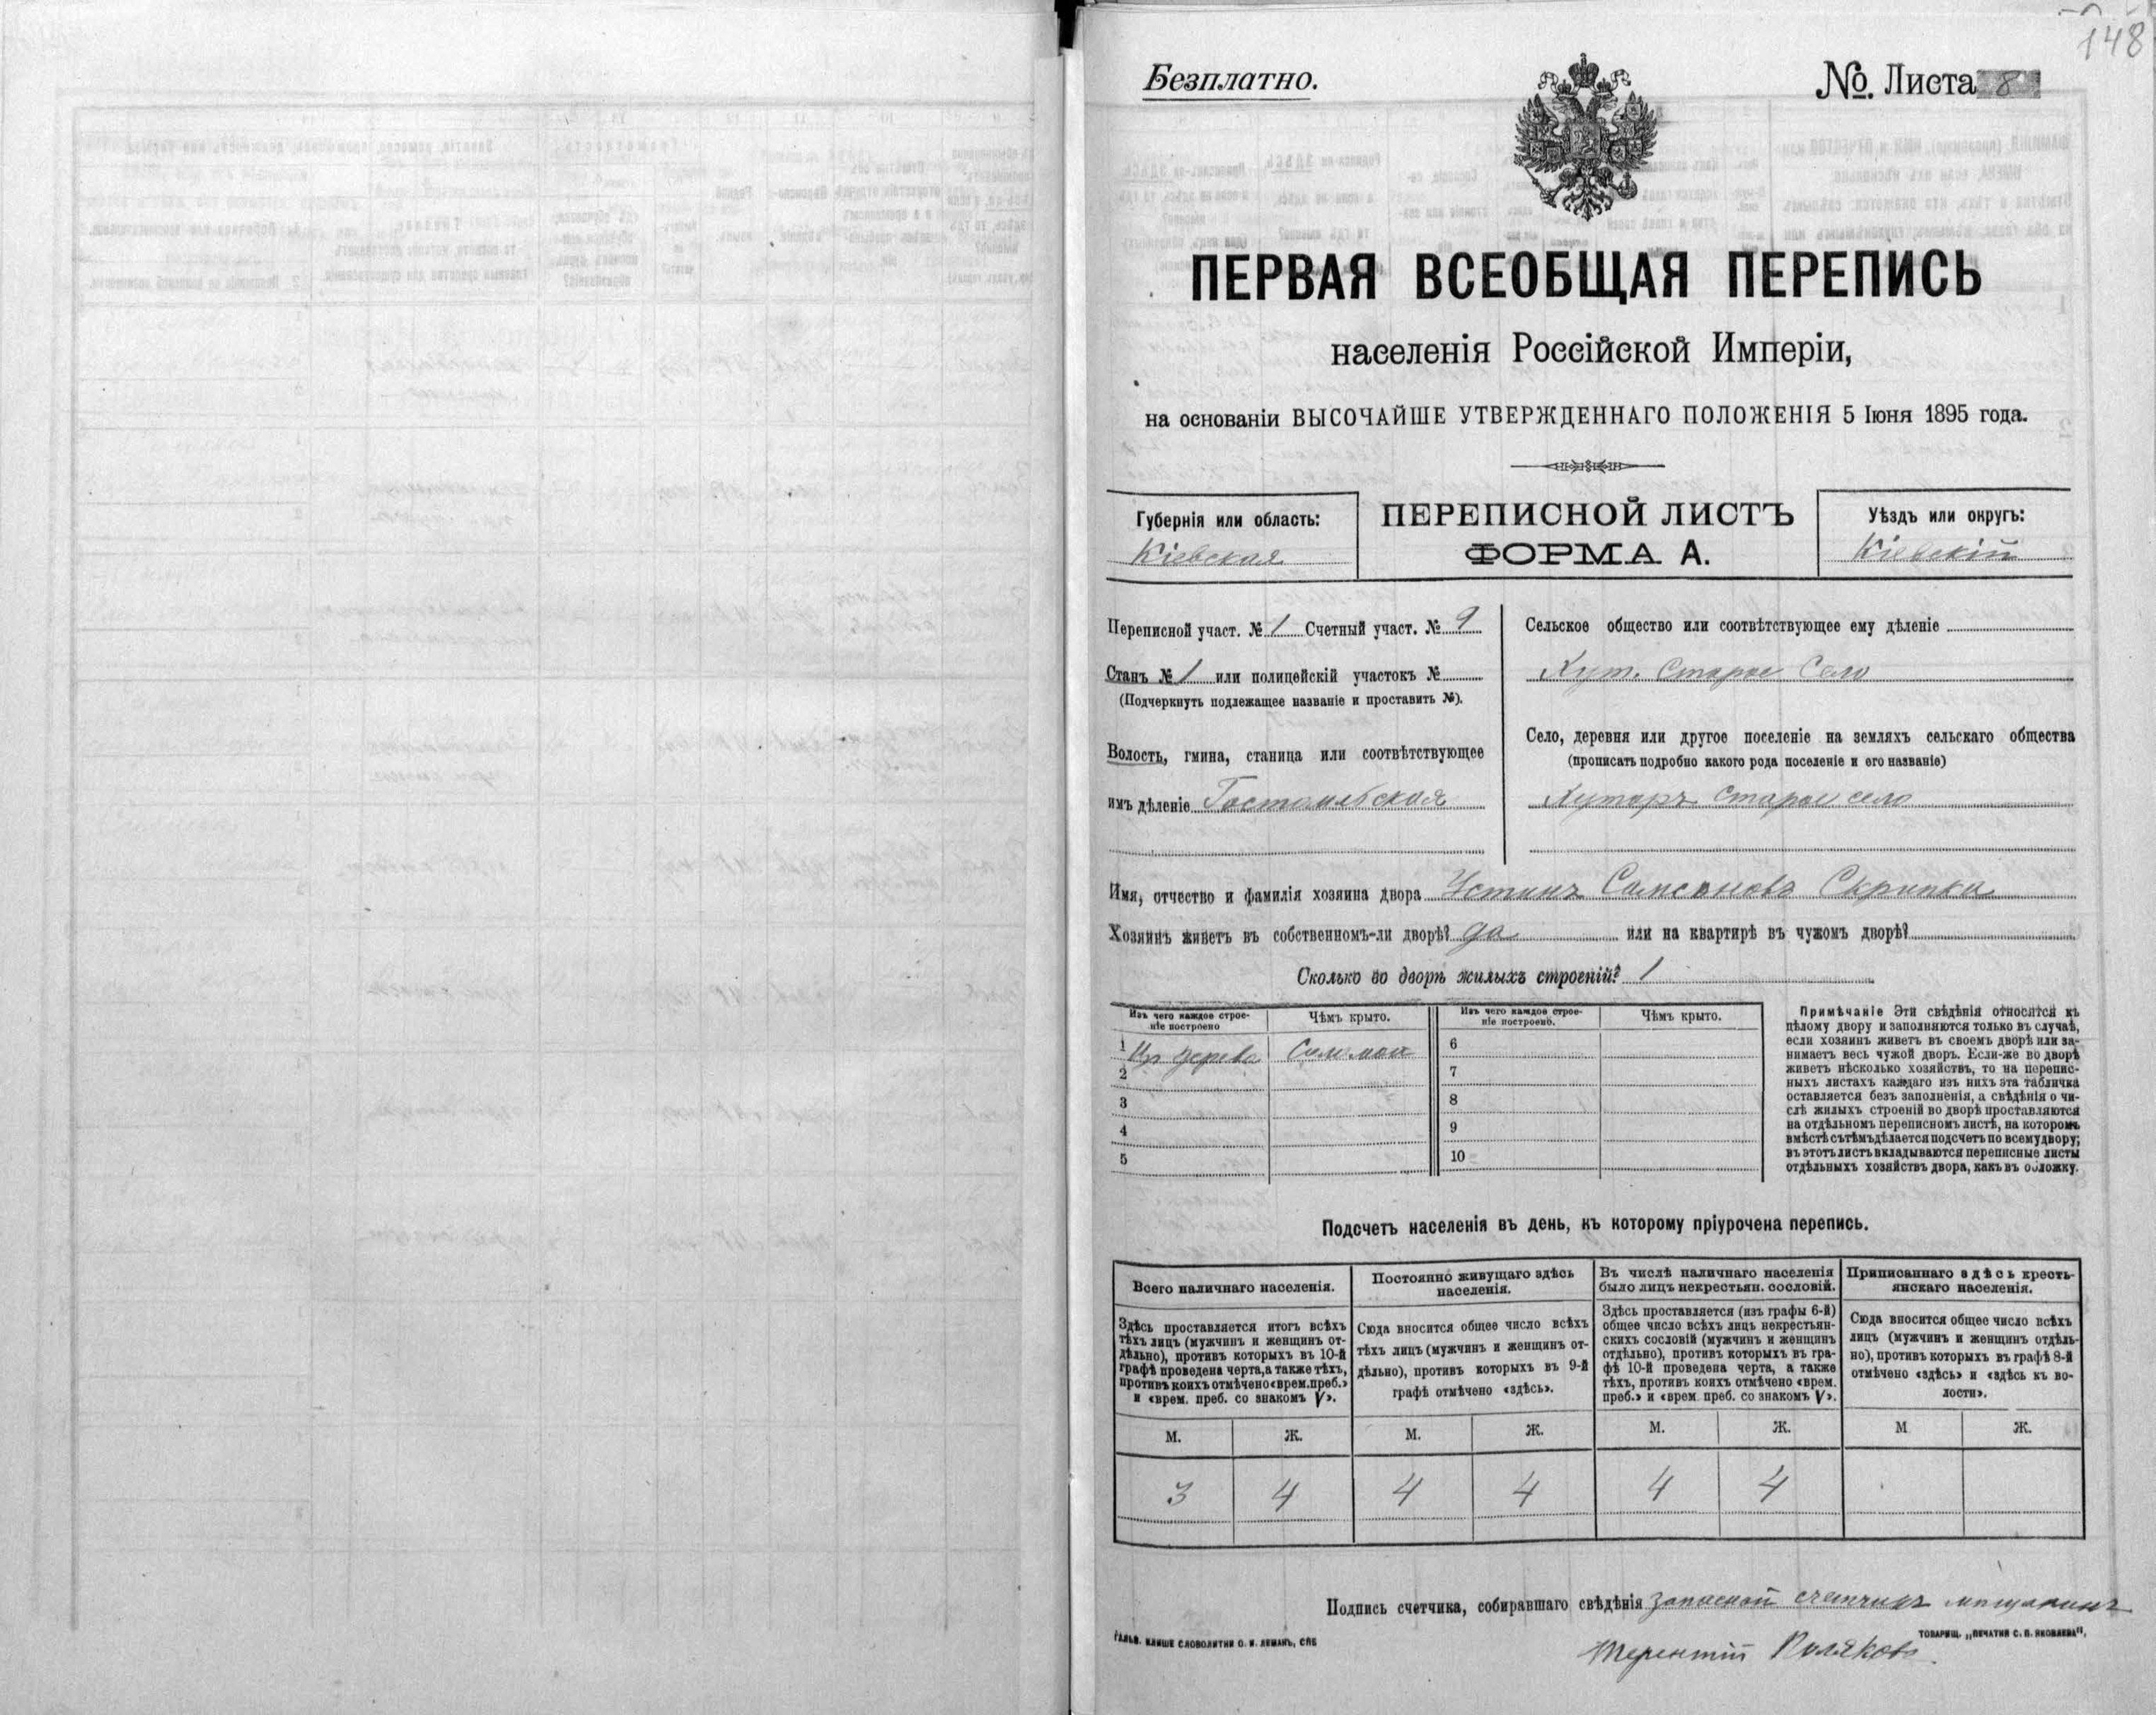 148
Безплатно.
№. Листа 8
ПЕРВАЯ ВСЕОБЩАЯ ПЕРЕПИСЬ
населенія Россійской Имперіи,
на основаніи ВЫСОЧАЙШЕ УТВЕРЖДЕННАГО ПОЛОЖЕНІЯ 5 Іюня 1895 года.
Губернія или область:
Кіевская
ПЕРЕПИСНОЙ ЛИСТЪ
ФОРМА А.
Уѣздъ или округъ:
Кіевскій
Переписной участ. № 1 Счетный участ. № 9
Станъ № 1 или полицейскій участокъ №
(Подчеркнуть подлежащее названіе и проставить №).
Волость, гмина, станица или соотвѣтствующее
имъ дѣленіе Гостомльская
Сельское общество или соотвѣтствующее ему дѣленіе
Хут. Старое Село
Село, деревня или другое поселеніе на земляхъ сельскаго общества
(прописать подробно какого рода поселеніе и его названіе)
Хуторъ Старое село
Имя, отчество и фамилія хозяина двора Устинъ Самсоновъ Скрипка
Хозяинъ живетъ въ собственномъ-ли дворѣ? да или на квартирѣ въ чужомъ дворѣ?
Сколько во дворѣ жилыхъ строеній? 1
Изъ чего каждое строе-
ніе построено
Чѣмъ крыто.
Изъ чего каждое строе-
ніе построено.
Чѣмъ крыто.
1 Изъ дерева Соломои
2
3
4
5
6
7
8
9
10
Примѣчаніе Эти свѣдѣнія относятся къ
цѣлому двору и заполняются только въ случаѣ,
если хозяинъ живетъ въ своемъ дворѣ или за-
нимаетъ весь чужой дворъ. Если-же во дворѣ
живетъ нѣсколько хозяйствъ, то на перепис-
ныхъ листахъ каждаго изъ нихъ эта табличка
оставляется безъ заполненія, а свѣдѣнія о чи-
слѣ жилыхъ строеній во дворѣ проставляются
на отдѣльномъ переписномъ листѣ, на которомъ
вмѣстѣ съ тѣмъ дѣлается подсчетъ по всему двору;
въ этотъ листъ вкладываются переписные листы
отдѣльныхъ хозяйствъ двора, какъ въ обложку.
Подсчетъ населенія въ день, къ которому пріурочена перепись.
Всего наличнаго населенія.
Здѣсь проставляется итогъ всѣхъ
тѣхъ лицъ (мужчинъ и женщинъ от-
дѣльно), противъ которыхъ въ 10-й
графѣ проведена черта, а также тѣхъ,
противъ коихъ отмѣчено «врем. преб.»
и «врем. преб. со знакомъ V».
Постоянно живущаго здѣсь
населенія.
Сюда вносится общее число всѣхъ
тѣхъ лицъ (мужчинъ и женщинъ от-
дѣльно), противъ которыхъ въ 9-й
графѣ отмѣчено «здѣсь».
Въ числѣ наличнаго населенія
было лицъ некрестьян. сословій.
Здѣсь проставляется (изъ графы 6-й)
общее число всѣхъ лицъ некрестьян-
скихъ сословій (мужчинъ и женщинъ
отдѣльно), противъ которыхъ въ гра-
фѣ 10-й проведена черта, а также
тѣхъ, противъ коихъ отмѣчено «врем.
преб.» и «врем. преб. со знакомъ V».
Приписаннаго здѣсь кресть-
янскаго населенія.
Сюда вносится общее число всѣхъ
лицъ (мужчинъ и женщинъ отдѣль-
но), противъ которыхъ въ графѣ 8-й
отмѣчено «здѣсь» и «здѣсь къ во-
лости».
М. Ж. М. Ж. М. Ж. М Ж.
3 4 4 4 4 4
Подпись счетчика, собиравшаго свѣдѣнія запасной счетчикъ мѣщанинъ
Терентій Поляковъ
ГАЛЬВ. КЛИШЕ СЛОВОЛИТНИ О. И. ЛЕМАНЪ, СПБ
ТОВАРИЩ. „ПЕЧАТНЯ С. П. ЯКОВЛЕВА",